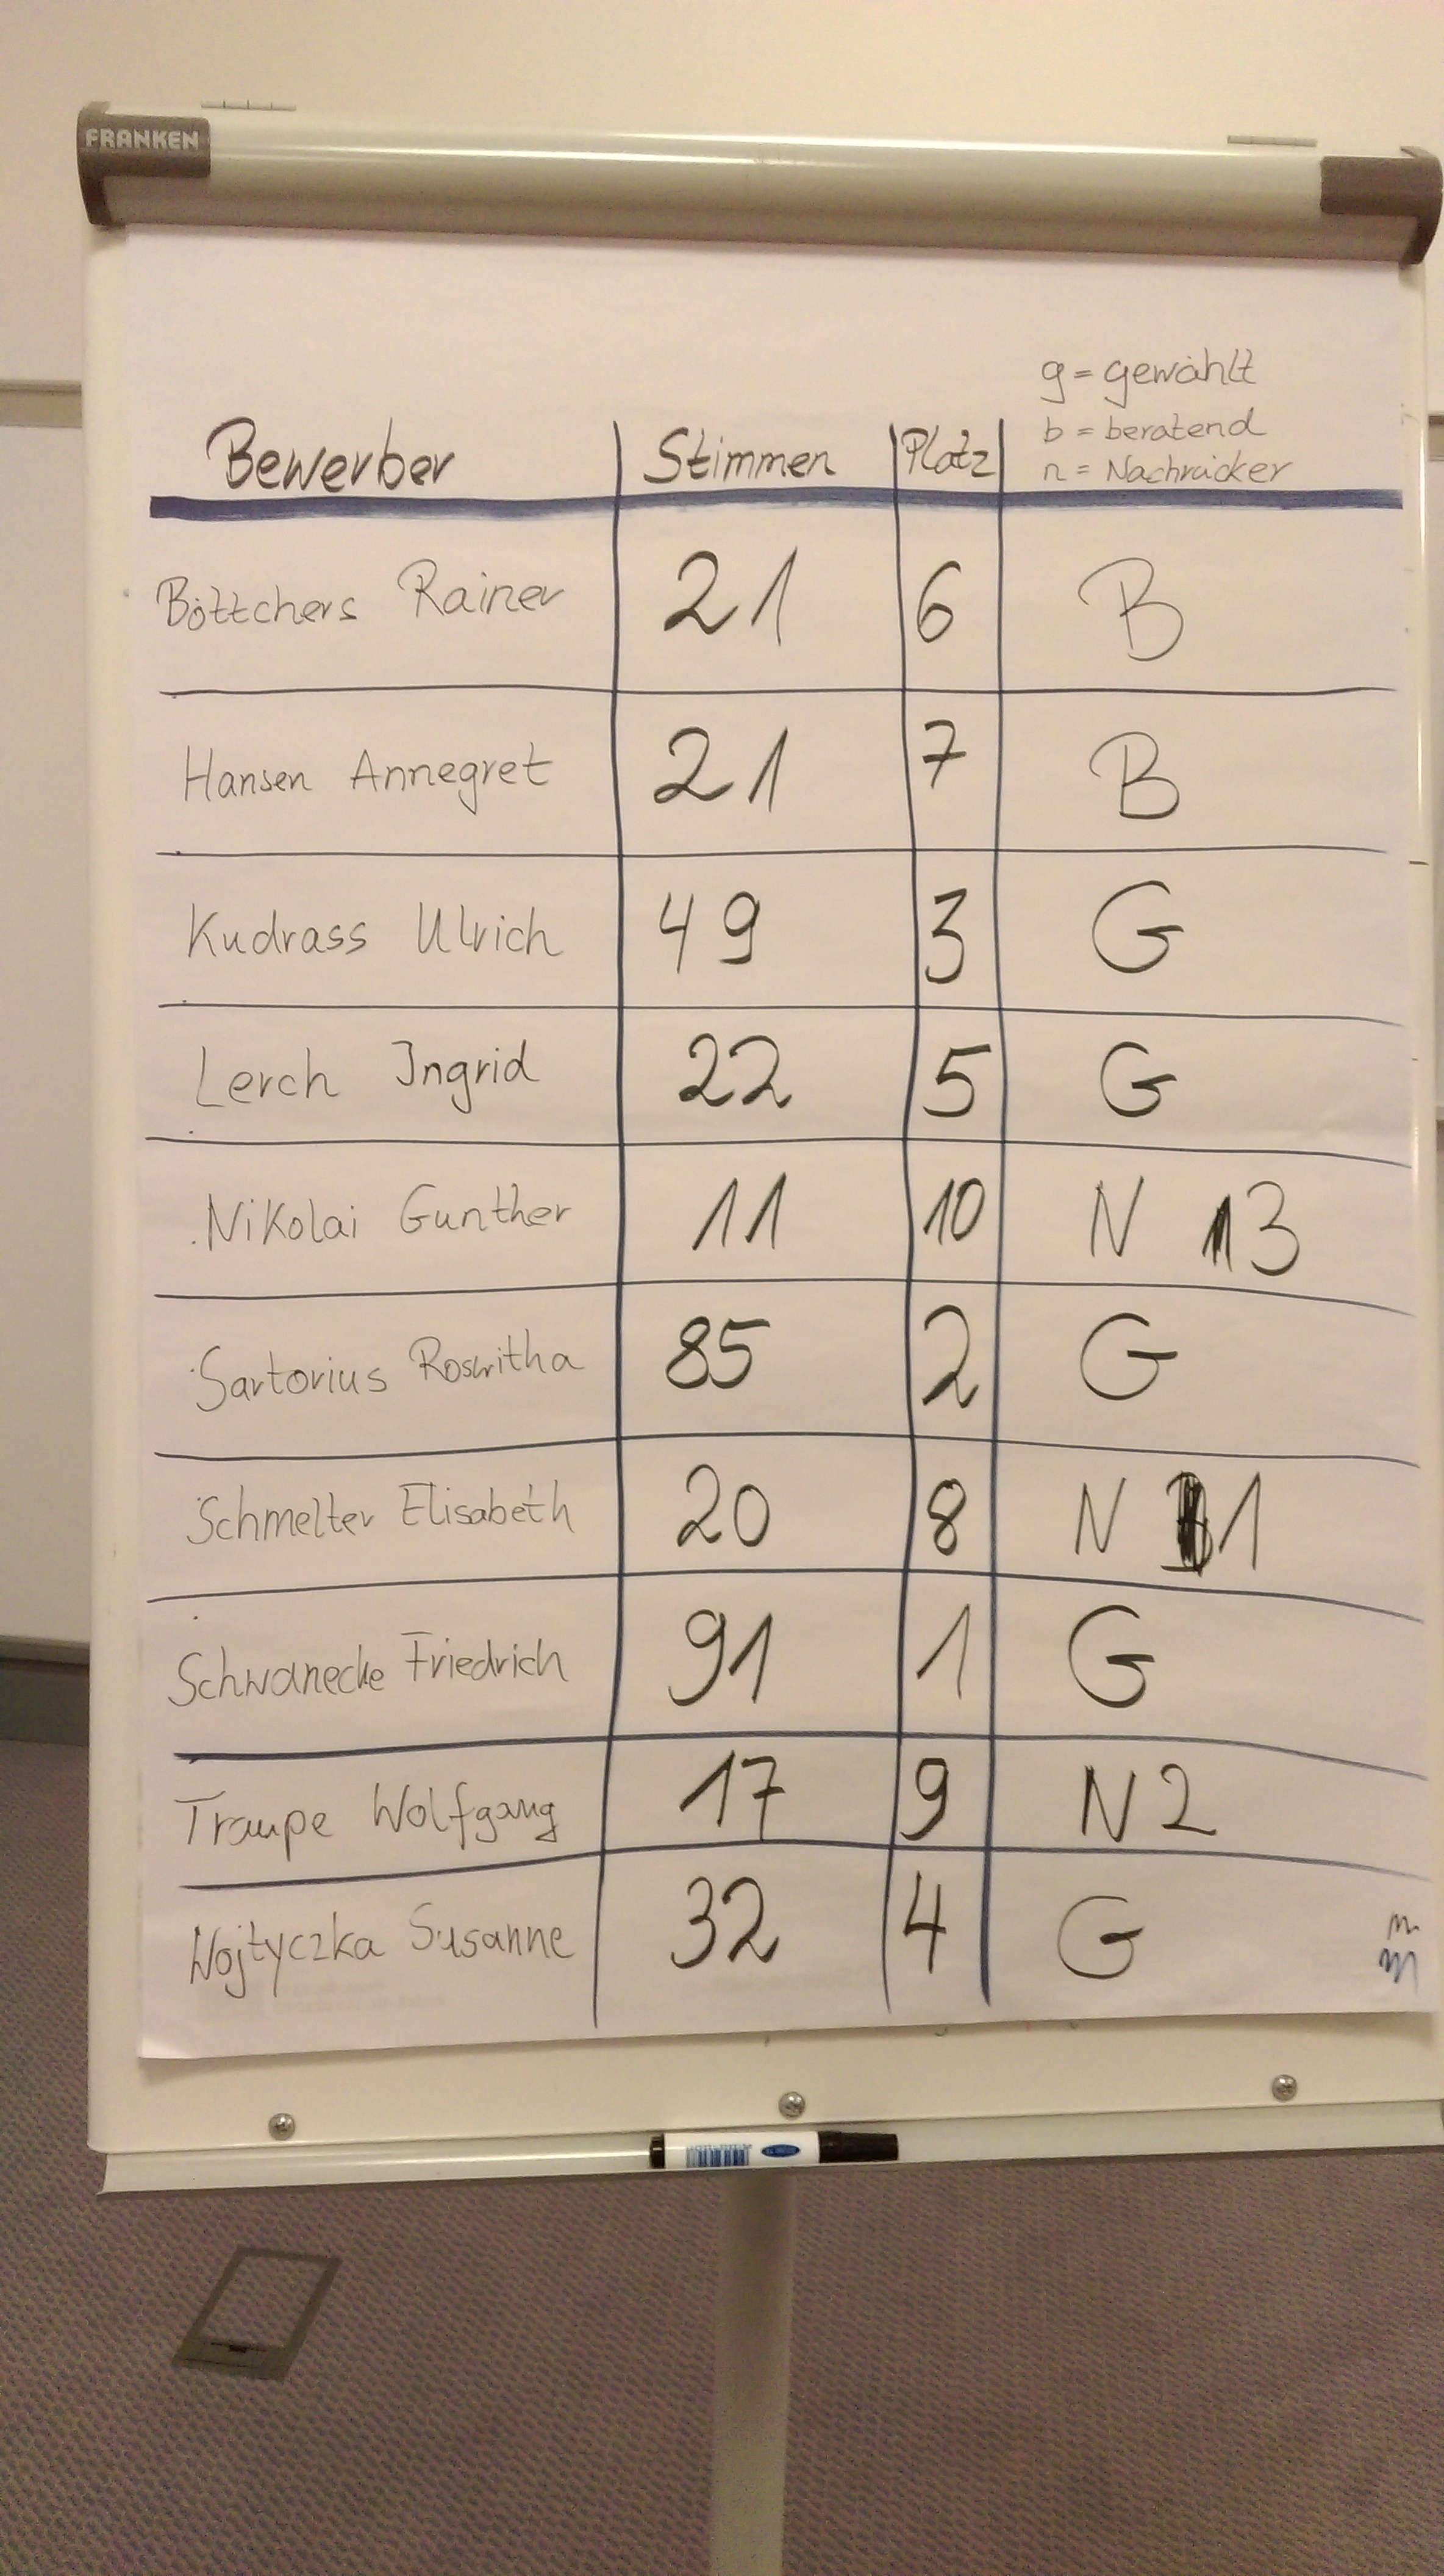 FRANKEN
g = gewählt
b = beratend
n = Nachrücker
Bewerber Stimmen Platz
Böttchers Rainer 21 6 B
Hansen Annegret 21 7 B
Kudrass Ulrich 49 3 G
Lerch Ingrid 22 5 G
Nikolai Gunther 11 10 N 3
Sartorius Roswitha 85 2 G
Schmelter Elisabeth 20 8 N 1
Schwanecke Friedrich 91 1 G
Traupe Wolfgang 17 9 N 2
Wojtyczka Susanne 32 4 G